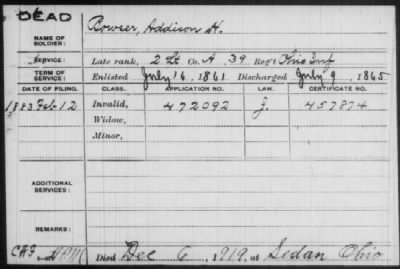 DEAD
NAME OF SOLDIER: Bowser, Addison H.
SERVICE: Late rank, 2 Lt Co. A, 39 Reg't Ohio Inf
TERM OF SERVICE: Enlisted July 16, 1861. Discharged July 9, 1865
DATE OF FILING. CLASS. APPLICATION NO. LAW. CERTIFICATE NO.
1883 Feb 12 Invalid, 472092 j. 457874
Widow,
Minor,
ADDITIONAL SERVICES:
REMARKS:
Died Dec 6, 1919, at Sedan Ohio